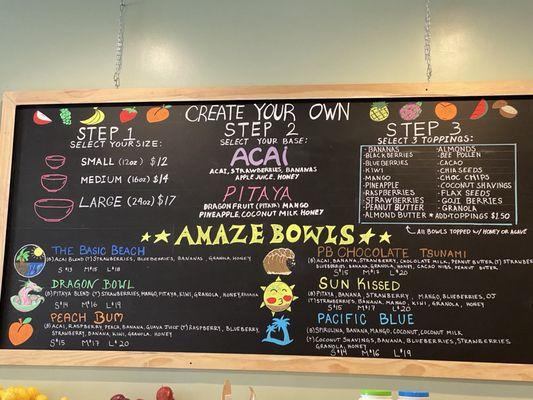 CREATE YOUR OWN
STEP 1
SELECT YOUR SIZE:
SMALL (12oz) $12
MEDIUM (16oz) $14
LARGE (24oz) $17
STEP 2
SELECT YOUR BASE:
ACAI
ACAI, STRAWBERRIES, BANANAS
APPLE JUICE, HONEY
PITAYA
DRAGON FRUIT (PITAYA) MANGO
PINEAPPLE, COCONUT MILK, HONEY
STEP 3
SELECT 3 TOPPINGS:
-BANANAS
-BLACKBERRIES
-BLUEBERRIES
-KIWI
-MANGO
-PINEAPPLE
-RASPBERRIES
-STRAWBERRIES
-PEANUT BUTTER
-ALMOND BUTTER
-ALMONDS
-BEE POLLEN
-CACAO
-CHIA SEEDS
-CHOC CHIPS
-COCONUT SHAVINGS
-FLAX SEEDS
-GOJI BERRIES
-GRANOLA
*ADD TOPPINGS $1.50
ALL BOWLS TOPPED W/ HONEY OR AGAVE
AMAZE BOWLS
THE BASIC BEACH
(B) ACAI BLEND (T) STRAWBERRIES, BLUEBERRIES, BANANAS, GRANOLA, HONEY
S $13 M $15 L $18
DRAGON BOWL
(B) PITAYA BLEND (T) STRAWBERRIES, MANGO, PITAYA, KIWI, GRANOLA, HONEY, BANANA
S $14 M $16 L $19
PEACH BUM
(B) ACAI, RASPBERRY, PEACH, BANANA, GUAVA JUICE (T) RASPBERRY, BLUEBERRY,
STRAWBERRY, BANANA, KIWI, GRANOLA, HONEY
S $15 M $17 L $20
PB CHOCOLATE TSUNAMI
(B) ACAI, BANANA, STRAWBERRY, CHOCOLATE MILK, PEANUT BUTTER (T) STRAWB
BLUEBERRIES, BANANA, GRANOLA, HONEY, CACAO NIBS, PEANUT BUTTER
S $15 M $17 L $20
SUN KISSED
(B) PITAYA, BANANA, STRAWBERRY, MANGO, BLUEBERRIES, OJ
(T) STRAWBERRIES, BANANA, MANGO, KIWI, GRANOLA, HONEY
S $15 M $17 L $20
PACIFIC BLUE
(B) SPIRULINA, BANANA, MANGO, COCONUT, COCONUT MILK
(T) COCONUT SHAVINGS, BANANA, BLUEBERRIES, STRAWBERRIES,
GRANOLA, HONEY
S $14 M $16 L $19